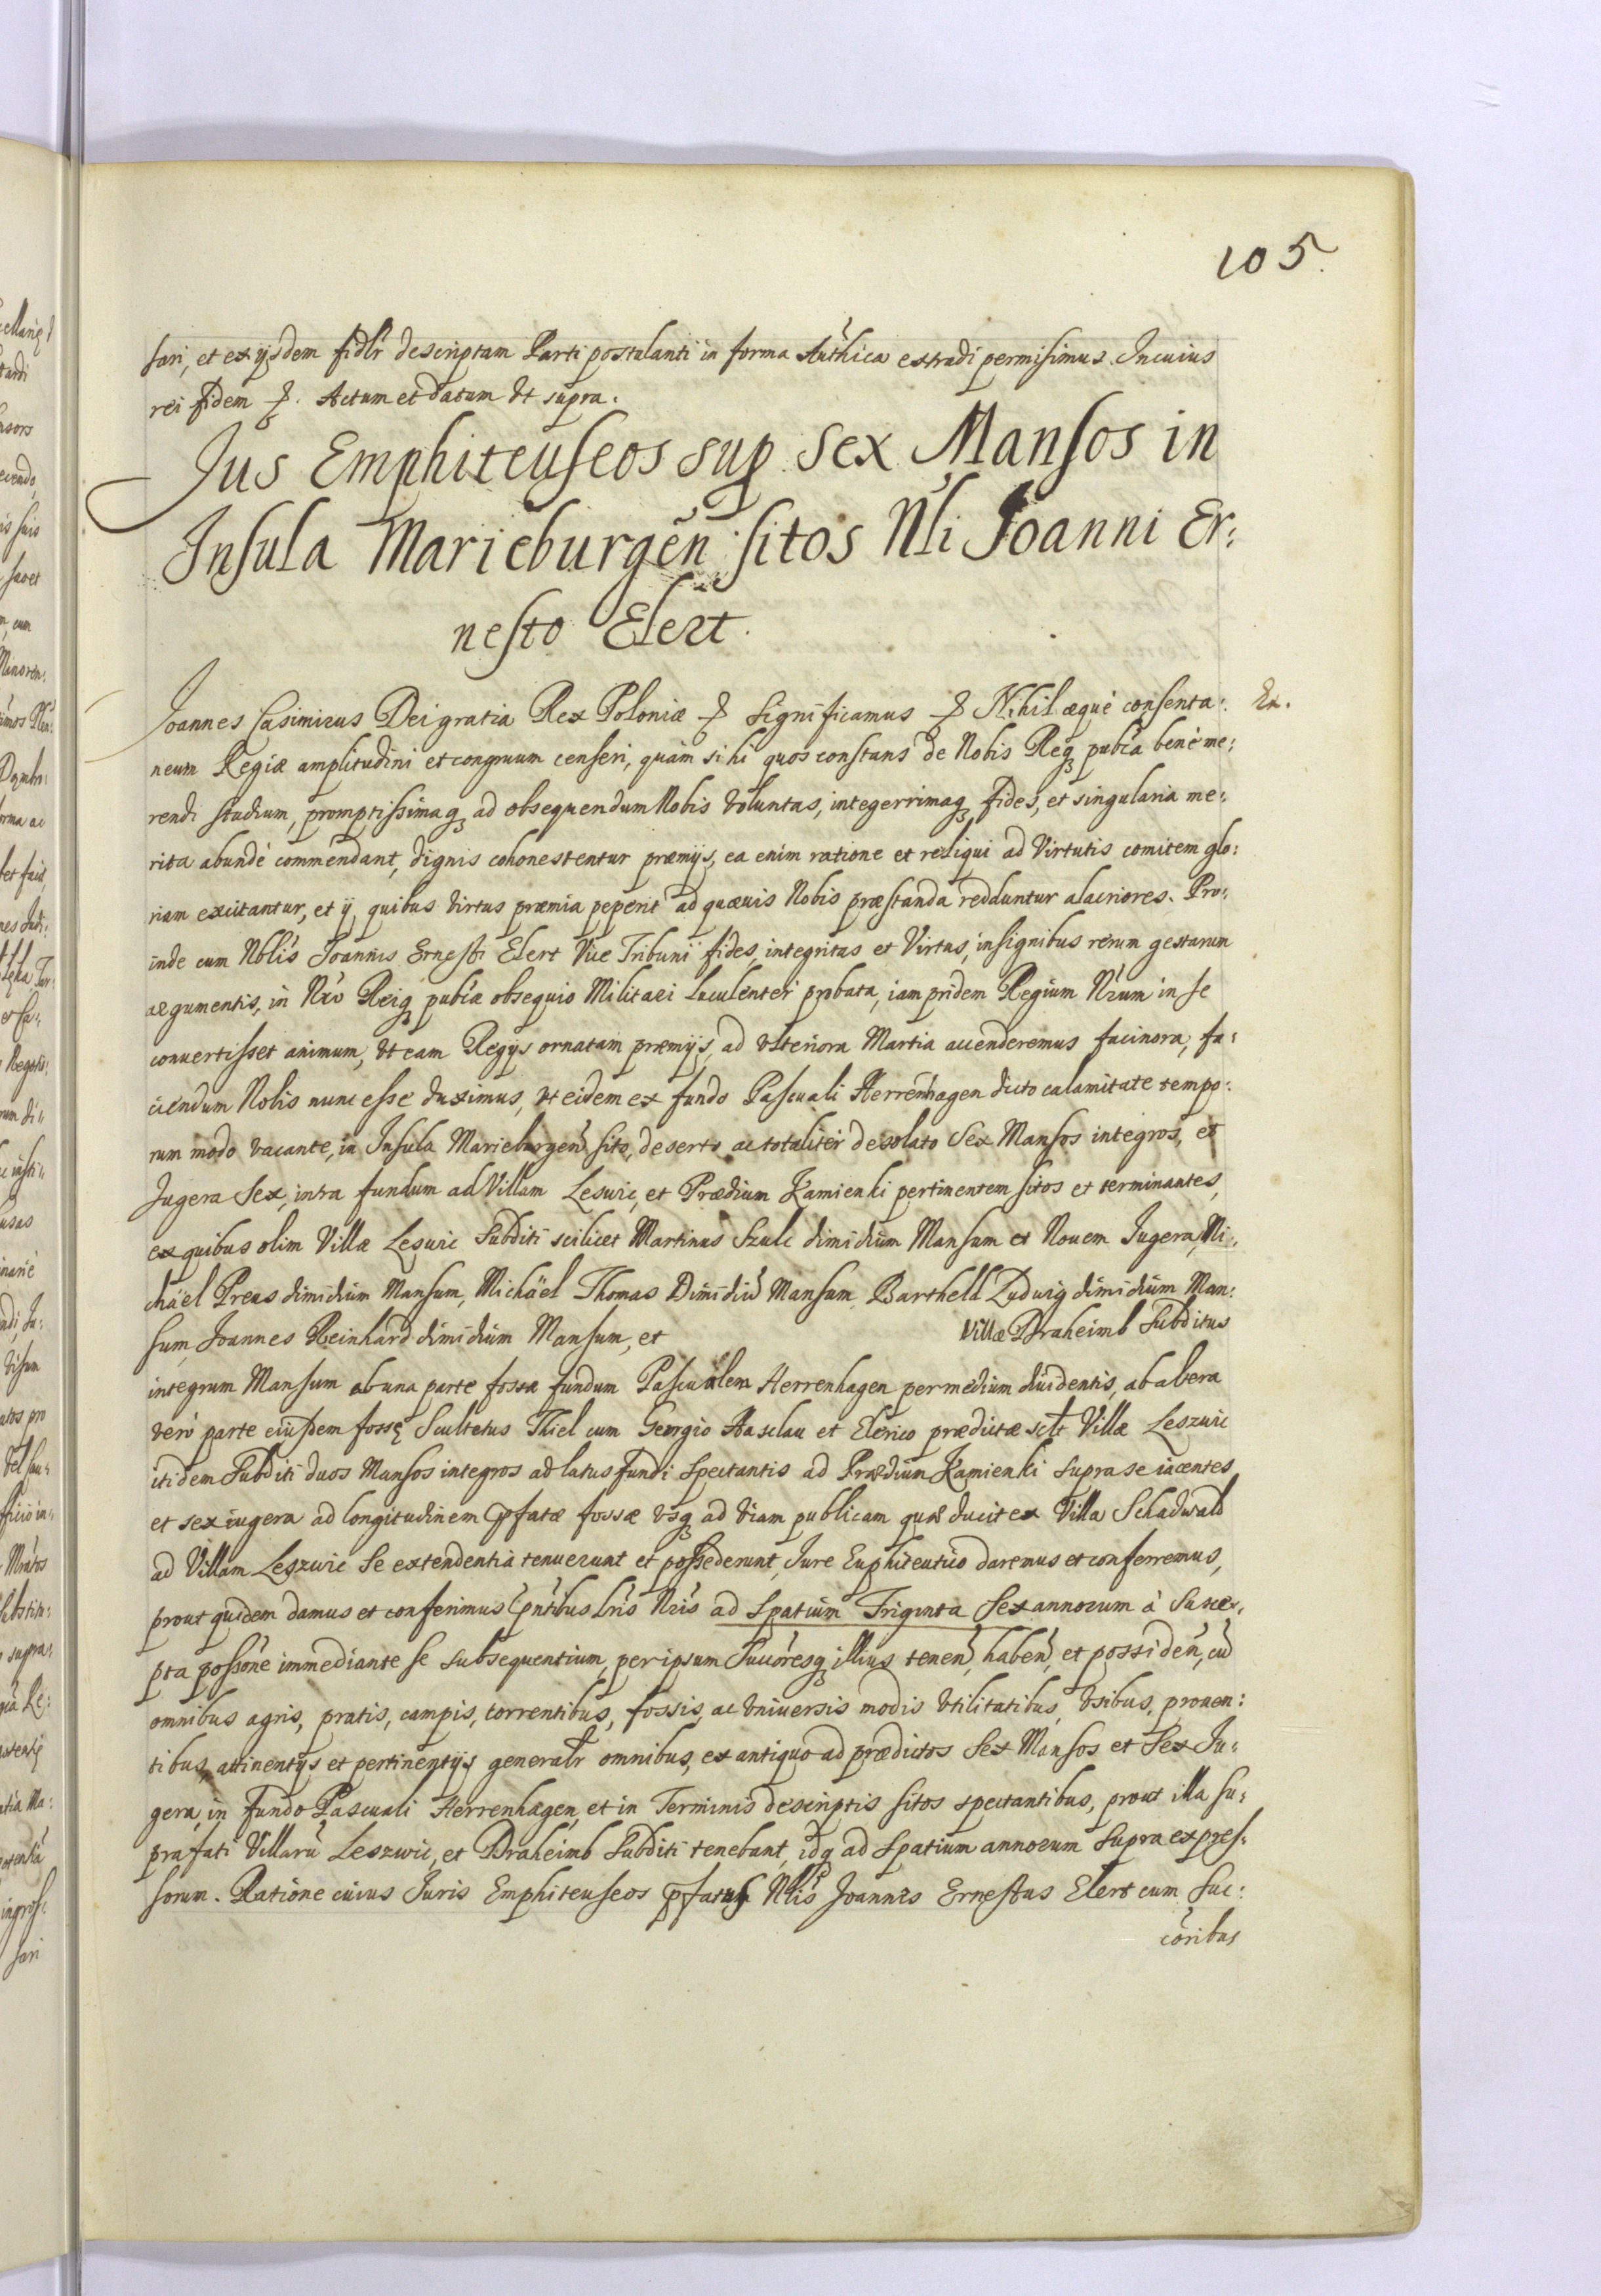 105.
sari, et ex ijsdem fidlr descriptam Parti postulanti in forma Authica extradi permisimus. In cuius
rei fidem &. Actum et datum ut supra.
Jus Emphiteuseos sup sex Mansos in
Insula Marieburgen sitos Nli Joanni Er:
nesto Elert.
Joannes Casimirus Dei gratia Rex Poloniæ & Significamus & Nihil æquè consenta:
neum Regiæ amplitudini et congruum censeri, quàm si hi quos constans de Nobis Reiq publca benè me:
rendi studium, promptissimaq ad obsequendum Nobis voluntas, integerrimaq fides, et singularia me:
rita abundè commendant, dignis cohonestentur præmijs, ea enim ratione et reliqui ad Virtutis comitem glo:
riam excitantur, et ij quibus virtus præmia peperit ad quævis Nobis præstanda redduntur alacriores. Pro:
inde cum Nblis Joannis Ernesti Elert Vice Tribuni fides, integritas et Virtus, insignibus rerum gestarum
argumentis, in Nro Reiq publcæ obsequio Militari luculenter probata, iam pridem Regium Nrum in se
convertisset animum, ut eam Regijs ornatam præmijs, ad ulteriora Martia accenderemus facinora, fa:
ciendum Nobis nunc esse duximus, ut eidem ex fundo Pascuali Herrenhagen dicto calamitate tempo:
rum modo vacante, in Insula Marieburgen sito, deserto ac totaliter desolato Sex Mansos integros, et
Jugera Sex, intra fundum ad Villam Leswic, et Prædium Kamienki pertinentem sitos et terminantes,
ex quibus olim Villæ Leswic Subditi scilicet Martinus Szulc dimidium Mansum et Novem Jugera, Mi:
chäel Preus dimidium Mansum, Michäel Thomas Dimidiu Mansum, Barthell Ludwig dimidium Man:
sum, Joannes Reinhard dimidium Mansum, et Villæ Braheimb Subditus
integrum Mansum ab una parte fossæ fundum Pascualem Herrenhagen per medium dividentis, ab altera
verò parte eiusdem fossę Scultetus Thiel cum Georgio Hasclau et Elerico prædictæ sclt Villæ Leszwic
itidem Subditi duos Mansos integros ad latus fundi spectantis ad Prædium Kamienki supra se iacentes
et sex iugera ad longitudinem pfatæ fossæ usq ad viam publicam quæ ducit ex Villa Schadwald
ad Villam Leszwic se extendentia tenuerunt et possederunt, Jure Emphiteutico daremus et conferremus,
prout quidem damus et conferimus pntibus lris Nris ad spatium Triginta Sex annorum à Susce:
pta possone immediante se subsequentium, per ipsum Succoresq illius tenen, haben, et possiden, cu
omnibus agris, pratis, campis, torrentibus, fossis, ac universis modis utilitatibus, usibus, proven:
tibus, attinentijs et pertinentijs generalr omnibus, ex antiquo ad prædictos Sex Mansos et Sex Ju:
gera, in fundo Pascuali Herrenhagen, et in Terminis descriptis sitos spectantibus, prout illa su:
prafati Villaru Leszwic, et Braheimb Subditi tenebant, idq ad spatium annorum supra expres:
sorum. Ratione cuius Juris Emphiteuseos pfatus Nlis Joannes Ernestus Elert cum suc:
coribus